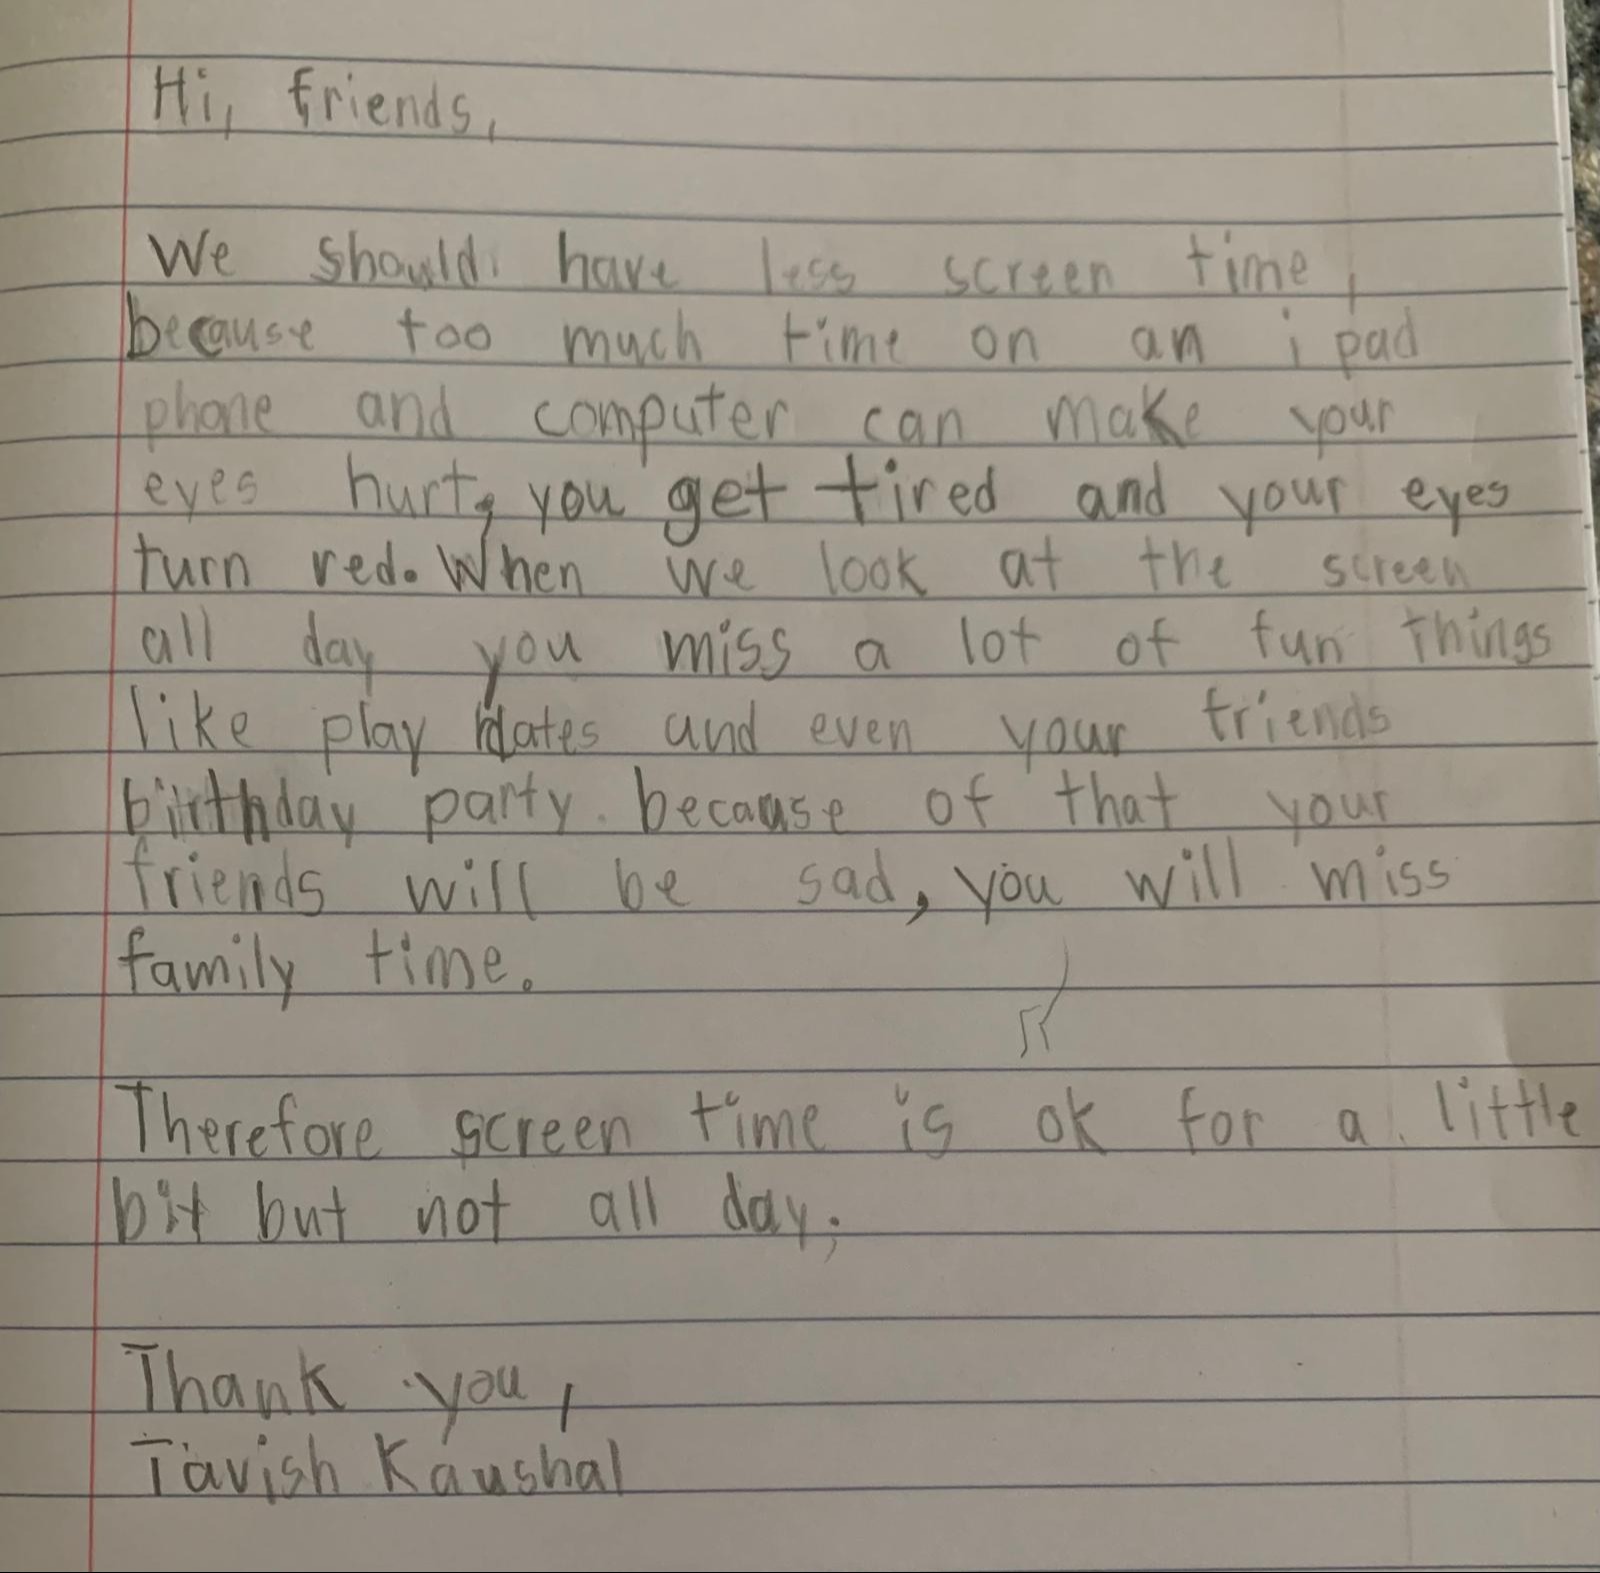 Hi, friends,
We should have less screen time,
because too much time on an i pad
phone and computer can make your
eyes hurt, you get tired and your eyes
turn red. When we look at the screen
all day you miss a lot of fun things
like play dates and even your friends
birthday party. because of that your
friends will be sad, you will miss
family time.
Therefore screen time is ok for a little
bit but not all day.
Thank you,
Tavish Kaushal